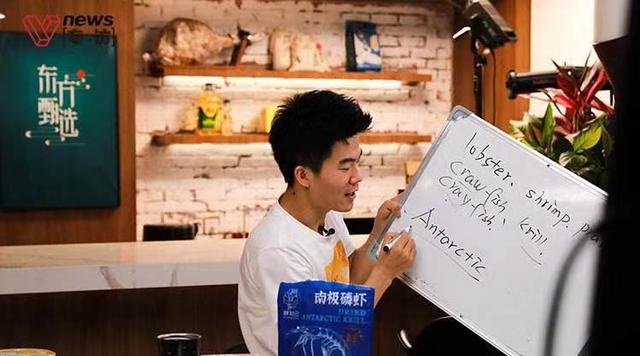 news
东方甄选
lobster、shrimp.
crawfish、krill.
crayfish.
Antarctic
南极磷虾
DRIED
ANTARCTIC KRILL